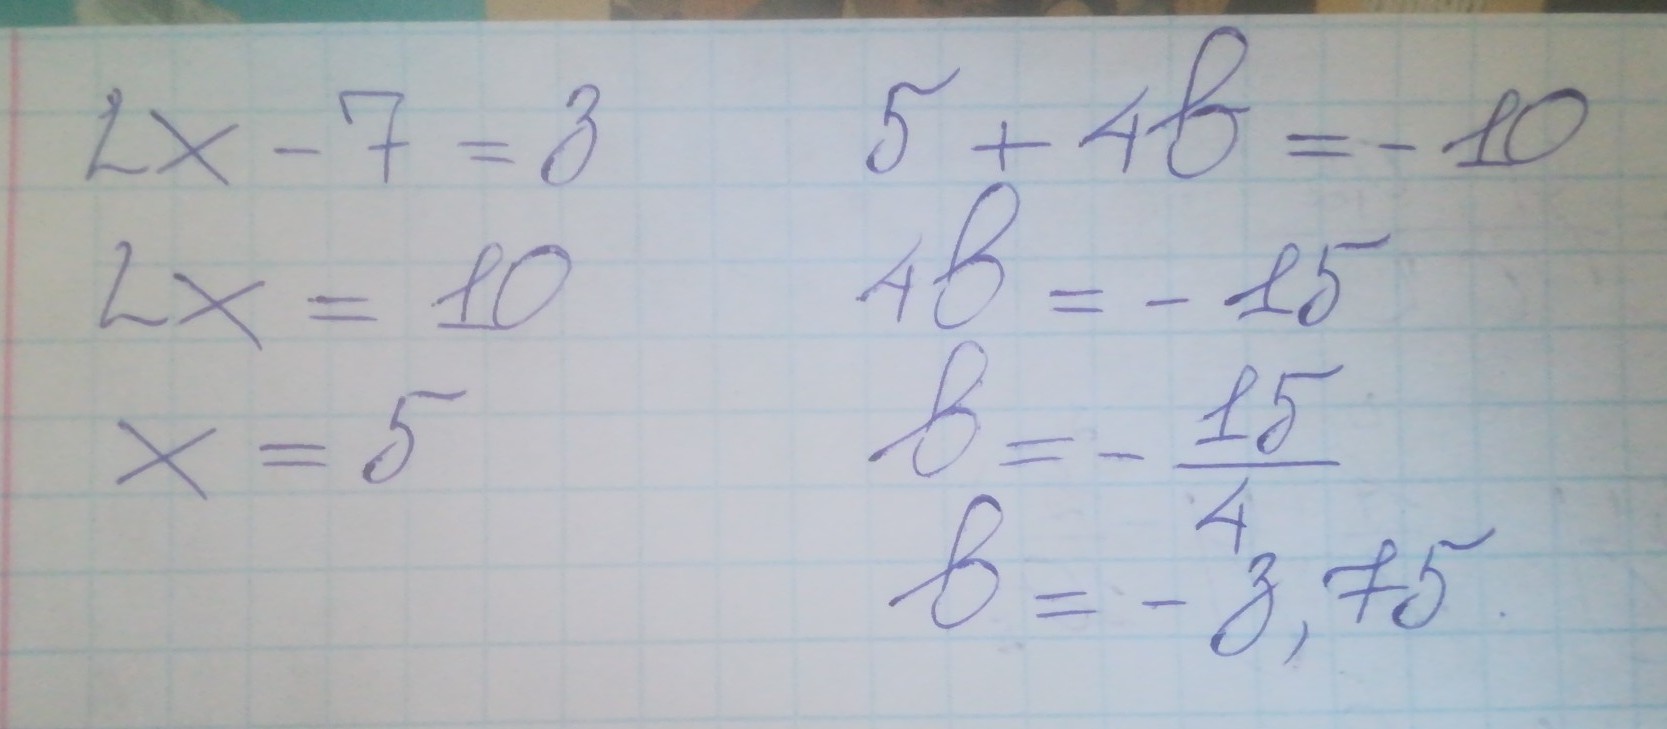 2x - 7 = 3
2x = 10
x = 5
5 + 4b = - 10
4b = - 15
b = - 15/4
b = - 3,75